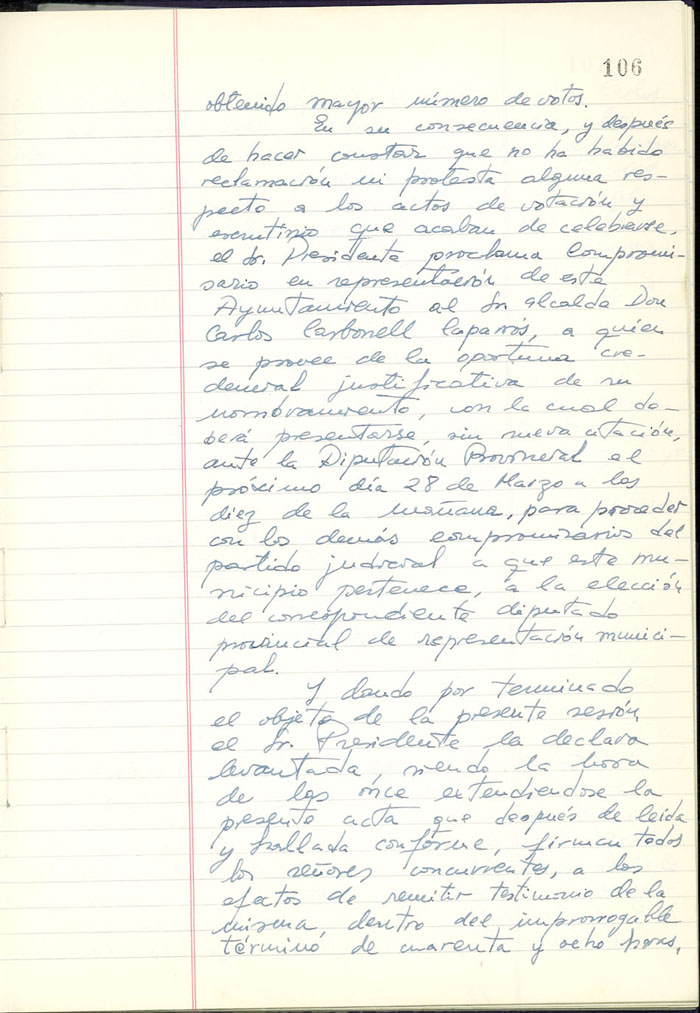 106
obtenido mayor número de votos.
En su consecuencia, y después
de hacer constar que no ha habido
reclamación ni protesta alguna res-
pecto a los actos de votación y
escrutinio que acaban de celebrarse,
el Sr. Presidente proclama Compromi-
sario en representación de este
Ayuntamiento al Sr Alcalde Don
Carlos Carbonell Caparrós, a quien
se provee de la oportuna cre-
dencial justificativa de su
nombramiento, con la cual de-
berá presentarse, sin nueva citación,
ante la Diputación Provincial el
próximo día 28 de Marzo a las
diez de la mañana, para proceder
con los demás compromisarios del
partido judicial a que este mu-
nicipio pertenece, a la elección
del correspondiente diputado
provincial de representación munici-
pal.
Y dando por terminado
el objeto de la presente sesión
el Sr. Presidente la declara
levantada, siendo la hora
de las once extendiendose la
presente acta que después de leida
y hallada conforme, firman todos
los señores concurrentes, a los
efectos de remitir testimonio de la
misma, dentro del improrrogable
término de cuarenta y ocho horas,